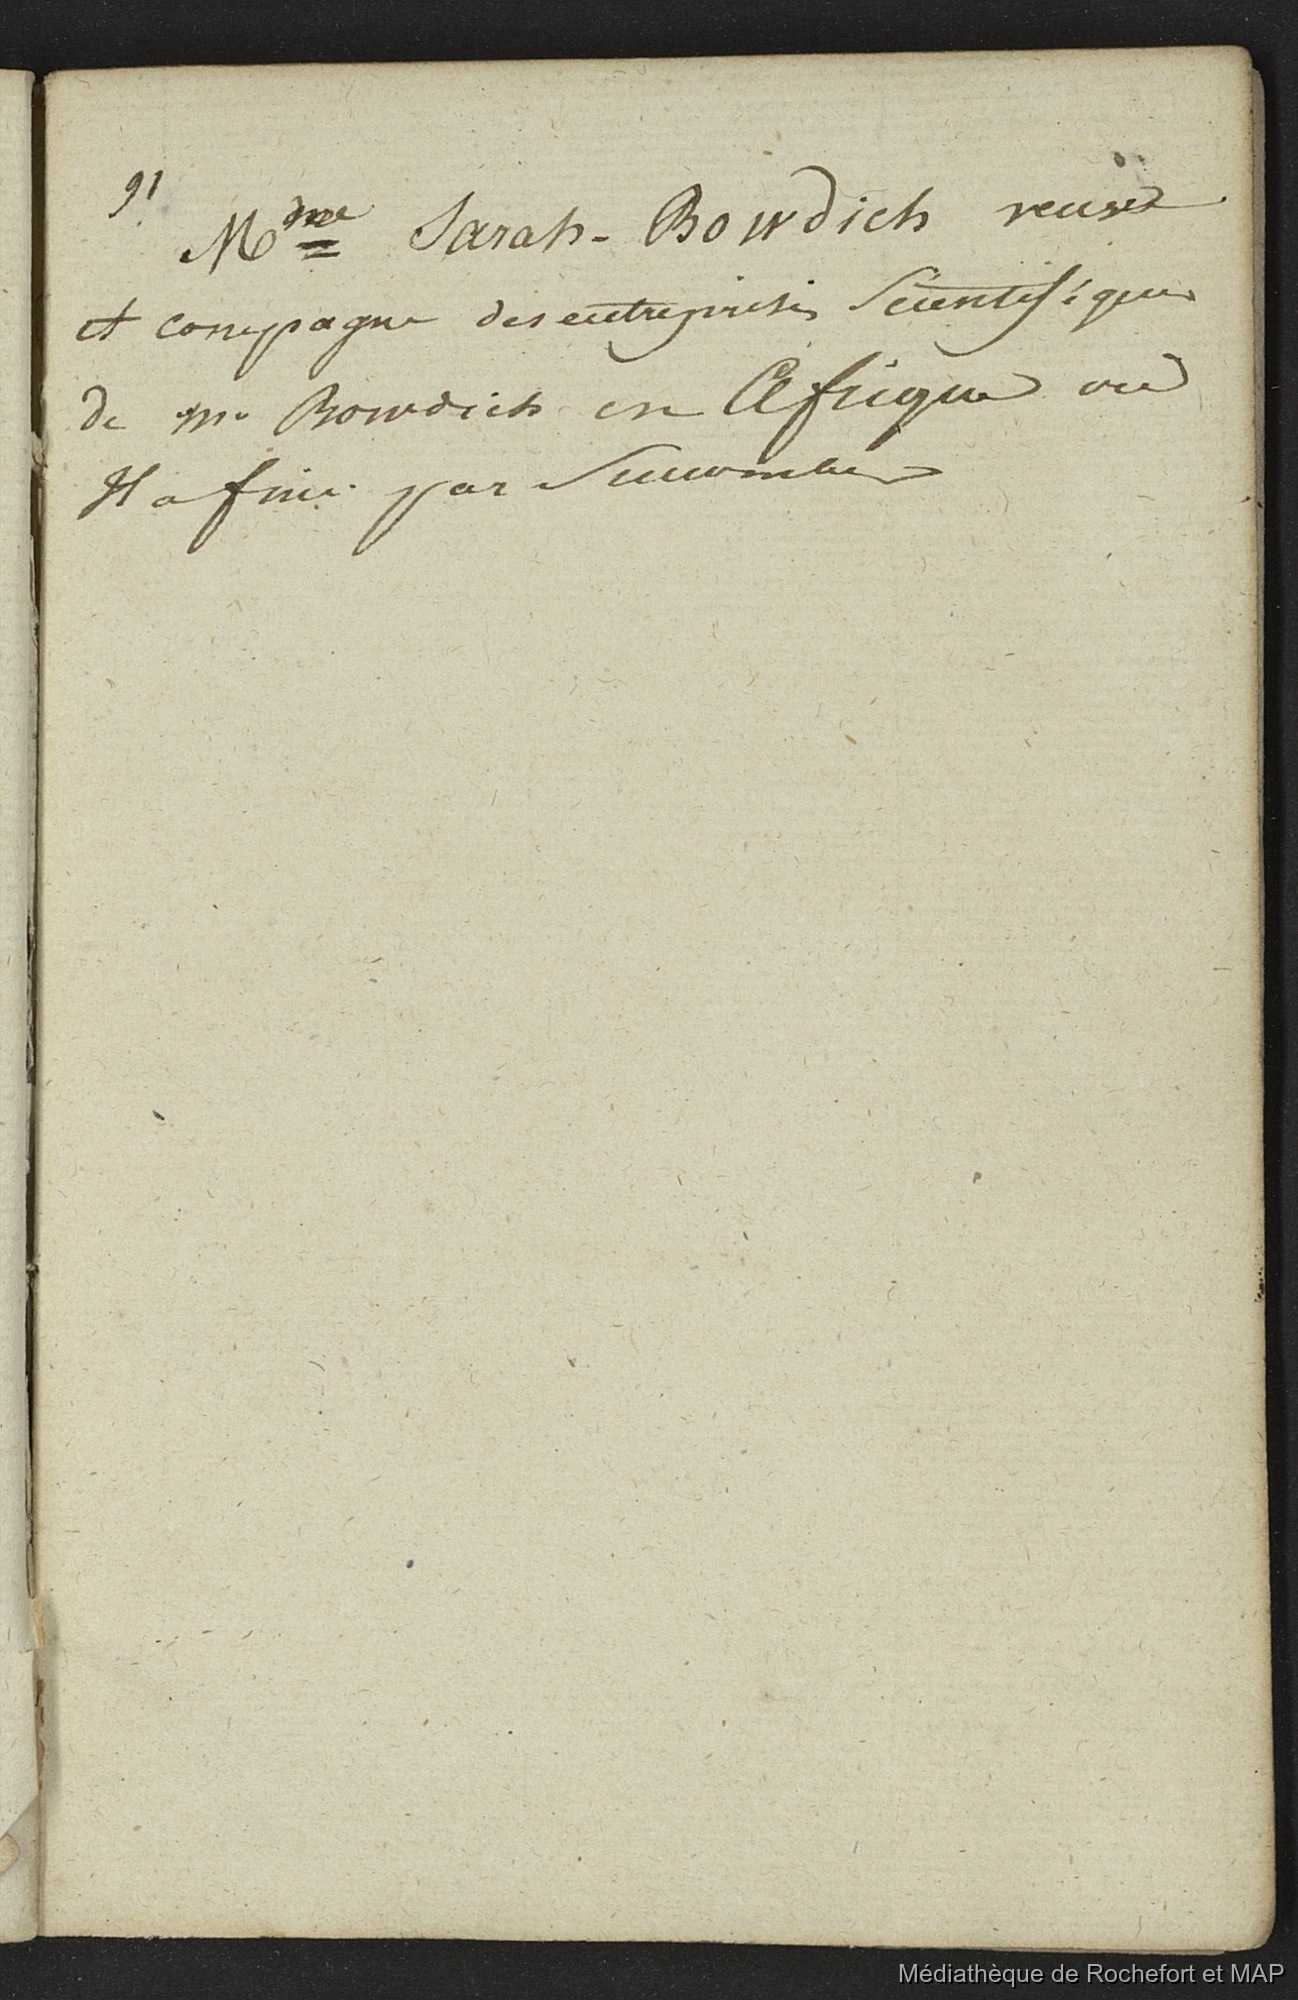 91
Mme Sarah-Bowdich veuve
et compagne des entreprises Scientifiques
de mr Bowdich en Afrique ou
Il a fini par Succomber
Médiathèque de Rochefort et MAP